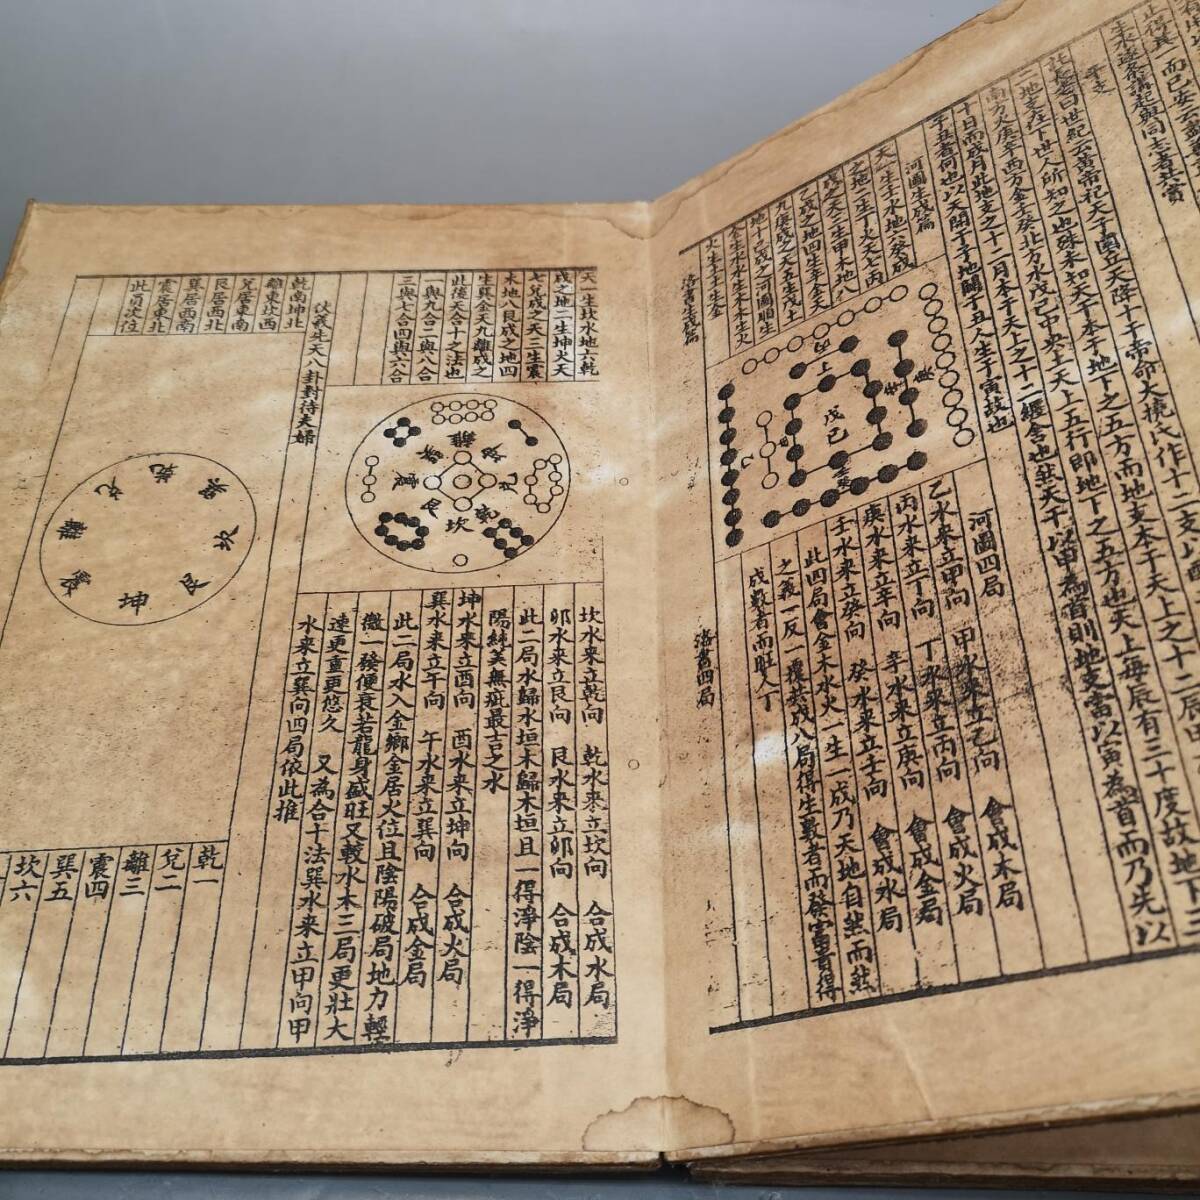 止得其一而已安云
生来逐条講起與同志者共賞
干支
註長者曰世紀云黄帝祀天于圜立天降十干帝命大撓氏作十二支以
二地支在下世人所知之也殊未知天干本于地下之五方而地支本于天上之十二辰
南方火庚辛西方金壬癸北方水戊己中央土天上五行即地下之五方也天上每辰有三十度故地下三
十日而成月此地支之十二月本于天上之十二纒舍也然天干以甲為首則地支當以寅為首而乃先以
子丑者何也以天開于子地闢于丑人生于寅故也
河圖生成篇
天一生壬水地六癸成
之地二生丁火天七丙
成之天三生甲木地八
乙成之地四生辛金天
九庚成之天五生戊土
地十己成之河圖順生
金生水水生木木生火
火生土土生金
戊己
河圖四局
乙水来立甲向 甲水来立乙向 會成木局
丙水来立丁向 丁水来立丙向 會成火局
庚水来立辛向 辛水来立庚向 會成金局
壬水来立癸向 癸水来立壬向 會成水局
此四局會金木水火一生一成乃天地自然而然
之義一反一覆共成八局得生數者而發富貴得
成數者而旺人丁
洛書生成篇
洛書四局
天一生坎水地六乾
成之地二生坤火天
七兌成之天三生震
木地八艮成之地四
生巽金天九離成之
此後天合十之法也
一與九合二與八合
三與七合四與六合
離
坤
兌
乾
坎
艮
震
巽
坎水来立乾向 乾水来立坎向 合成水局
卯水来立艮向 艮水来立卯向 合成木局
此二局水歸水垣木歸木垣且一得淨陰一得淨
陽純美無疵最吉之水
坤水来立酉向 酉水来立坤向 合成火局
巽水来立午向 午水来立巽向 合成金局
此二局水入金鄉金居火位且陰陽破局地力輕
微一發便衰若龍身盛旺又較水木三局更壯大
速更重更悠久 又為合十法巽水来立甲向甲
水来立巽向四局依此推
伏羲先天八卦對待夫婦
乾南坤北
離東坎西
兌居東南
艮居西北
巽居西南
震居東北
此頁次位
乾
巽
坎
艮
坤
震
離
兌
乾一
兌二
離三
震四
巽五
坎六